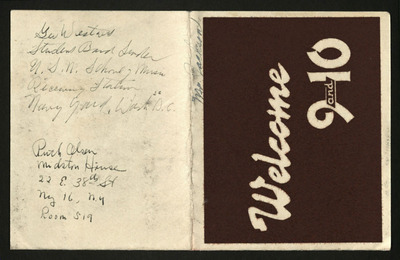 Student Band Leader
U. S. N. School of Music
Receiving Station
Navy Yard, Wash D.C.
Ruth Olsen
Midston House
22 E. 38th St
Ny 16, Ny
Room 519
Welcome
9 and 10